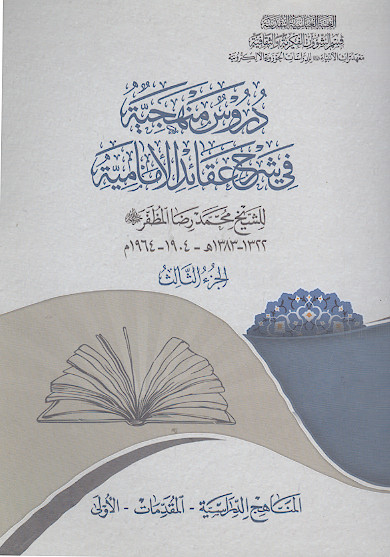 العتبة العباسية المقدسة
قسم الشؤون الفكرية والثقافية
معهد تراث الأنبياء للدراسات الحوزوية الالكترونية
دُرُوسٌ مَنْهَجِيَّةٌ
فِي شَرْحِ عَقَائِدِ الْإِمَامِيَّةِ
للشيخ محمد رضا المظفر
١٣٢٢-١٣٨٣هـ - ١٩٠٤-١٩٦٤م
الجزء الثالث
المناهج الدراسية - المقدمات - الأولى